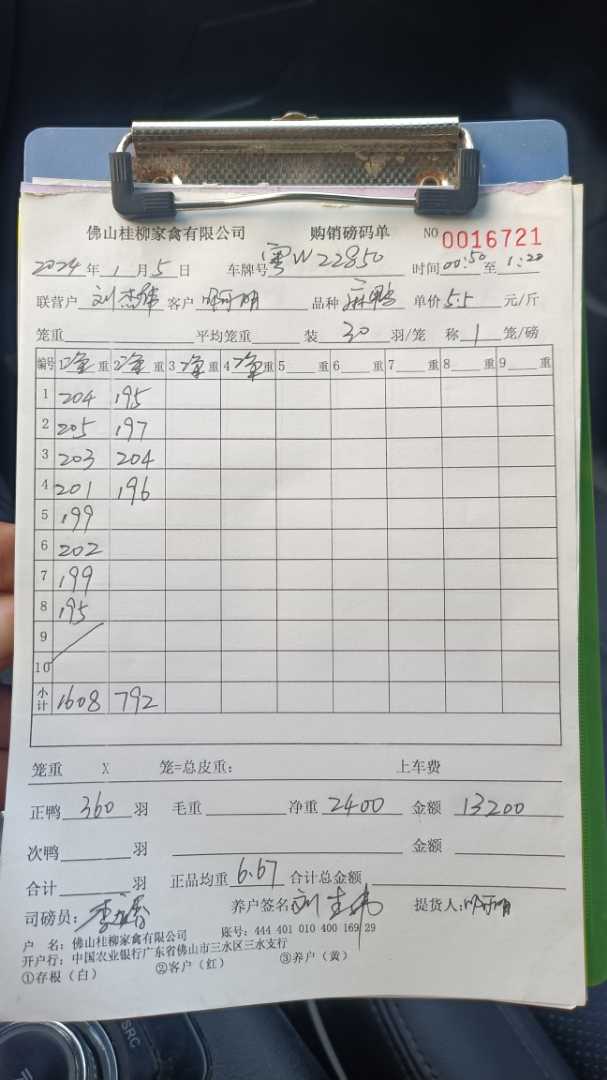 佛山桂柳家禽有限公司 购销磅码单 NO 0016721
2024年1月5日 车牌号粤W22850 时间00:50至1:20
联营户 刘杰伟 客户 品种 麻鸭 单价5.5元/斤
笼重 平均笼重 装 30 羽/笼 称 1 笼/磅
编号 1净重 2净重 3净重 4净重 5 重 6 重 7 重 8 重 9 重
1 204 195
2 205 197
3 203 204
4 201 196
5 199
6 202
7 199
8 195
9
10
小计 1608 792
笼重 X 笼=总皮重: 上车费
正鸭 360 羽 毛重 净重 2400 金额 13200
次鸭 羽 金额
合计 羽 正品均重 6.67 合计总金额
司磅员: 养户签名: 刘 提货人:
户 名: 佛山桂柳家禽有限公司 账号: 444 401 010 400 169 29
开户行: 中国农业银行广东省佛山市三水区三水支行
①存根(白) ②客户(红) ③养户(黄)
SRC